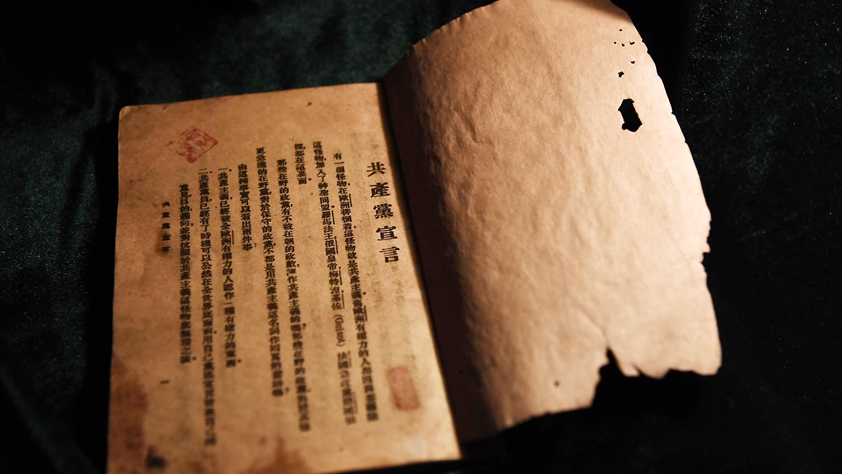 共產黨宣言
有一個怪物在歐洲徘徊着這怪物就是共產主義歐洲有權力的人都因為要驅除
這怪物加入了神聖同盟羅馬法王俄國皇帝梅特涅基佐(Guizot)法國急進黨德國偵
探都在這裏面
那些在野的政黨有不被在朝的政敵誣作共產主義的嗎那些在野的政黨對於其他
更急進的在野黨對於保守的政黨不都是用共產主義這名詞作回罵的套語嗎
由這種事實可以看出兩件事
一共產主義已經被全歐洲有權力的人認作一種有權力的東西
二共產黨員已經有了時機可以公然在全世界底面前用自己黨底宣言發表自己的
意見目的趨向並對抗關於共產主義這怪物底無稽之談
共產黨宣言
一